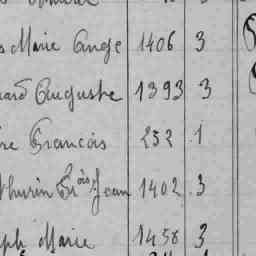 s Marie Ange 1406 3
ard Auguste 1393 3
re Francois 252 1
thurin Frois Jean 1402 3
ph Marie 1458 3